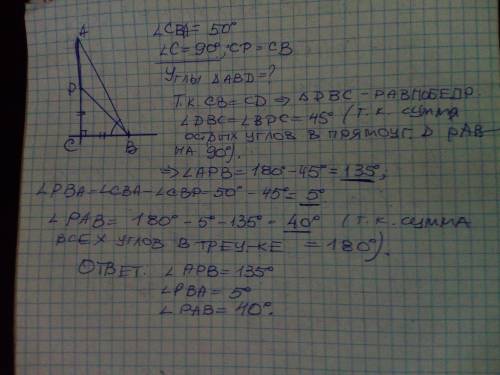 A
D
C
B
∠CBA = 50°
∠C = 90°, CD = CB
Углы ΔABD = ?
Т.К. CB = CD ⇒ ΔDBC – РАВНОБЕДР.
∠DBC = ∠BDC = 45° (Т.К. СУММА
ОСТРЫХ УГЛОВ В ПРЯМОУГ. Δ РАВ-
НА 90°).
⇒ ∠ADB = 180° – 45° = 135°;
∠DBA = ∠CBA – ∠CBD = 50° – 45° = 5°
∠DAB = 180° – 5° – 135° = 40° (Т.К. СУММА
ВСЕХ УГЛОВ В ТРЕУ-КЕ = 180°).
ОТВЕТ. ∠ADB = 135°
∠DBA = 5°
∠DAB = 40°.